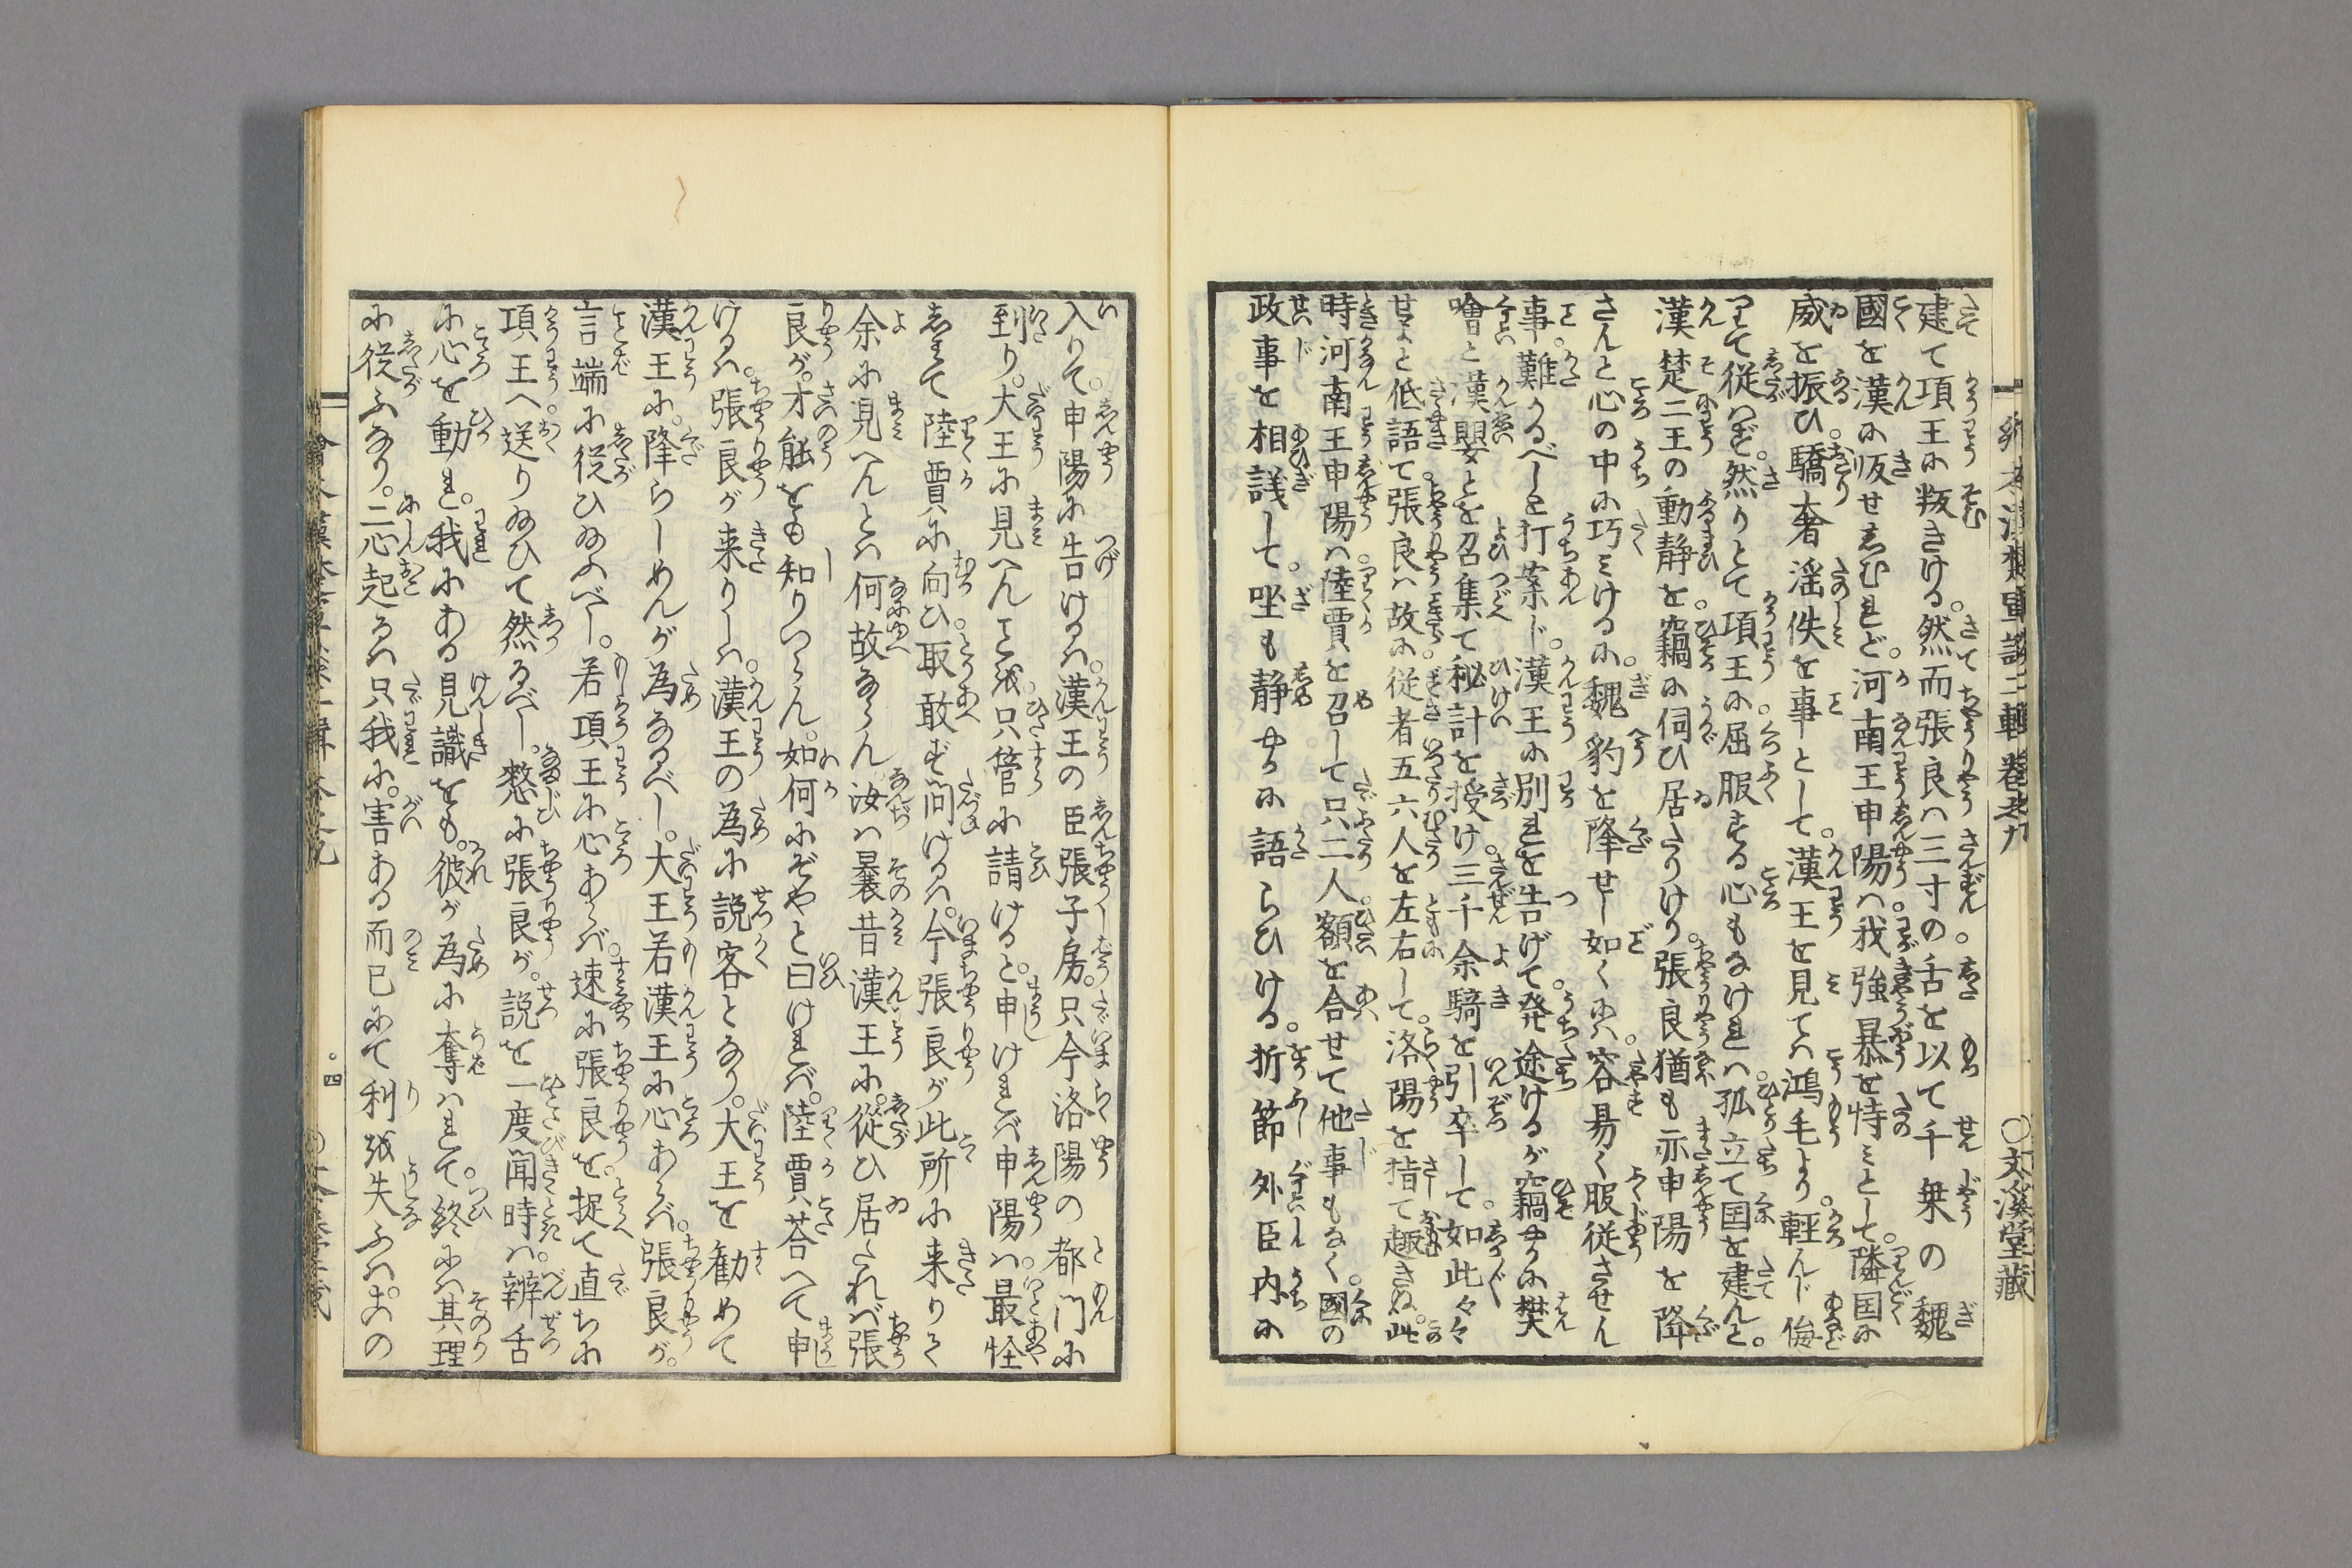 建て項王に叛きける。然而張良は三寸の舌を以て千乗の魏
國を漢に皈せしむれど。河南王申陽は我強暴を恃みとして。隣国に
威を振ひ。驕奢淫佚を事として。漢王を見ては鴻毛より。軽んじ侮
りて従はず。然りとて項王に屈服する心もなければ。孤立て国を建んと。
漢楚二王の動静を。竊に伺ひ居たりけり。張良猶も亦申陽を降
さんと心の中に巧みけるに。魏豹を降せし如くには。容易く服従させん
事。難かるべしと打案じ。漢王に別れを告げて発。途けるが竊かに樊
噲と漢嬰とを召集て秘計を授け。三千余騎を引卒して。如此々々
せよと低語て。張良は故に。従者五六人を左右して。洛陽を指て趣きぬ。此
時河南王申陽は。陸賈を召して只二人。額を合せて他事もなく。國の
政事を相議して。坐も静やかに語らひける。折節外臣内に
入りて。申陽に告けるは。漢王の臣張子房。只今洛陽の都門に
到り。大王に見へんことを。只管に請けると。申しければ申陽は。最怪
しみて陸賈に向ひ。取敢ず問けるは。今張良が此所に来りて
余に見へんとは何故ならん。汝は曩昔漢王に。従ひ居たれば張
良が。才能をも知りつらん。如何にぞやと曰ければ。陸賈荅へて申
けるは。張良が来りしは。漢王の為に説客となり。大王を勧めて
漢王に。降らしめんが為なるべし。大王若漢王に心あらば。張良が。
言端に従ひ給ふべし。若項王に心あらば。速に張良を。捉て直ちに
項王へ。送り給ひて然るべし。憖に張良が。説を一度聞時は。辨舌
に心を動かされ。我にある見識をも。彼が為に奪はれて。終には其理
に従ふなり。二心起るは只我に。害ある而已にて利を失ふは。おの
○文溪堂藏
四